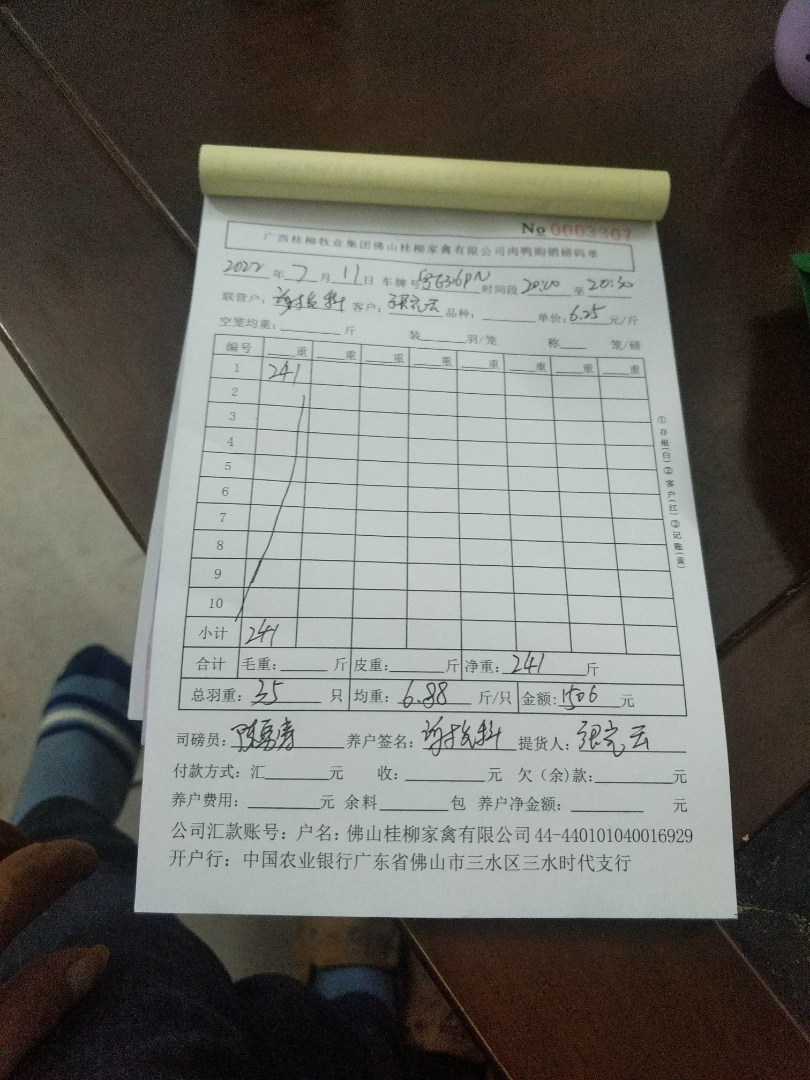 No 0003307
广西桂柳牧业集团佛山桂柳家禽有限公司肉鸭购销磅码单
2022年7月11日 车牌号 时间段20:00至20:30
联营户: 客户: 品种: 单价:6.25元/斤
空笼均重: 斤 装 羽/笼 称 笼/磅
编号 重 重 重 重 重 重 重 重
1 241
2
3
4
5
6
7
8
9
10
小计 241
合计 毛重: 斤 皮重: 斤 净重:241斤
总羽重:35只 均重:6.88斤/只 金额:1506元
司磅员: 养户签名: 提货人:
付款方式:汇 元 收: 元 欠(余)款: 元
养户费用: 元 余料 包 养户净金额: 元
公司汇款账号:户名:佛山桂柳家禽有限公司44-440101040016929
开户行:中国农业银行广东省佛山市三水区三水时代支行
①存根(白)②客户(红)③记账(黄)